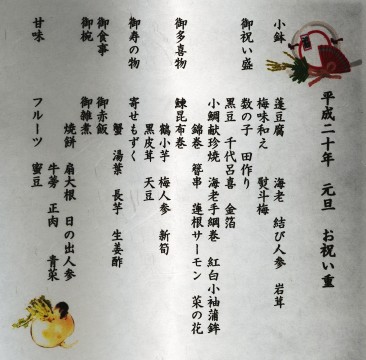 平成二十年 元旦 お祝い重
小鉢 蓬豆腐 海老 結び人参 岩茸
梅味和え 熨斗梅
御祝い盛 数の子 田作り
黒豆 千代呂喜 金箔
小鯛献珍焼 海老手綱巻 紅白小袖蒲鉾
錦巻 簪串 蓮根サーモン 菜の花
御多喜物 鰊昆布巻
鶴小芋 梅人参 新筍
黒皮茸 天豆
御寿の物 寄せもずく
蟹 湯葉 長芋 生姜酢
御食事 御赤飯
御椀 御雑煮
焼餅 扇大根 日の出人参
牛蒡 正肉 青菜
甘味 フルーツ 蜜豆